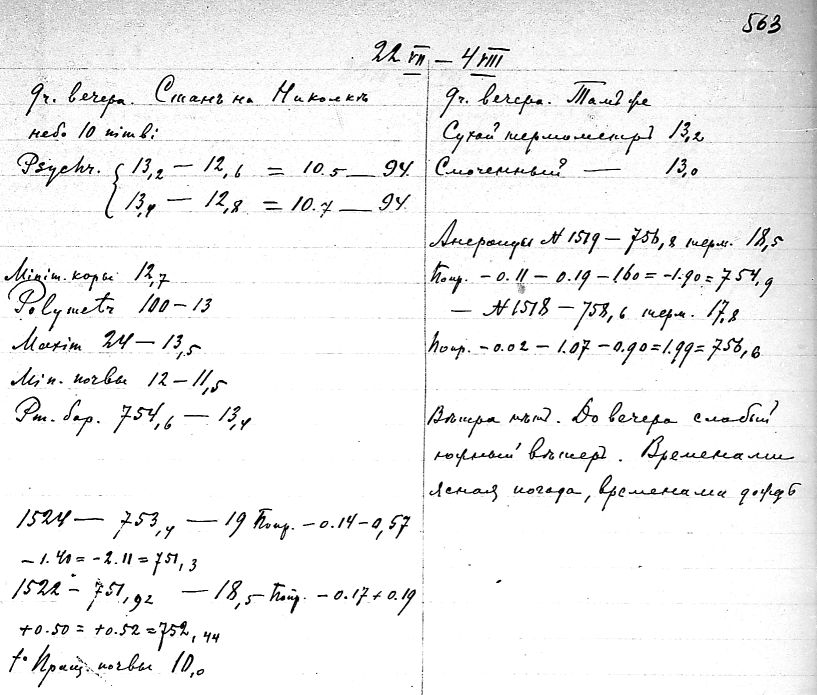 563
22 VII — 4 VIII
9ч. вечера. Станъ на
небо 10
Psychr. { 13,2 — 12,6 = 10.5 — 94
13,4 — 12,8 = 10.7 — 94
Minim. коры 12,7
Polymetr 100 — 13
Maxim 24 — 13,5
Min. почвы 12 — 11,5
Рт. бар. 754,6 — 13,4
1524 — 753,4 — 19 Попр. — 0.14 — 0,57
— 1.40 = — 2.11 = 751,3
1522 — 751,92 — 18,5 Попр. — 0.17 + 0.19
+ 0.50 = + 0.52 = 752,44
t° Пращ. почвы 10,0
9ч. вечера. Тамъ же
Сухой термометръ 13,2
Смоченный — 13,0
Анероиды № 1519 — 756,8 терм. 18,5
Попр. — 0.11 — 0.19 — 1.60 = — 1.90 = 754,9
— № 1518 — 758,6 терм. 17,8
Попр. — 0.02 — 1.07 — 0.90 = 1.99 = 756,6
Вѣтра нѣтъ. До вечера слабый
южный вѣтеръ. Временами
ясная погода, временами дождь